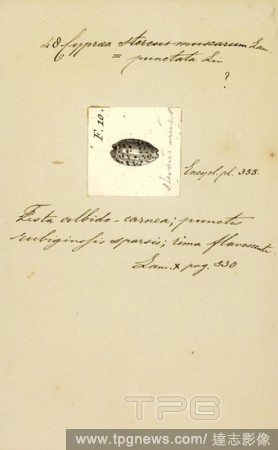 48 Cypræa stercus muscarum Lam
= punctata Lin
?
F. 10.
Encycl. pl. 355.
Testa albido-carnea; punctis
rubiginosis sparsis; rima flavescente.
Lam. X pag. 530
TPG
www.tpgnews.com/ 達志影像